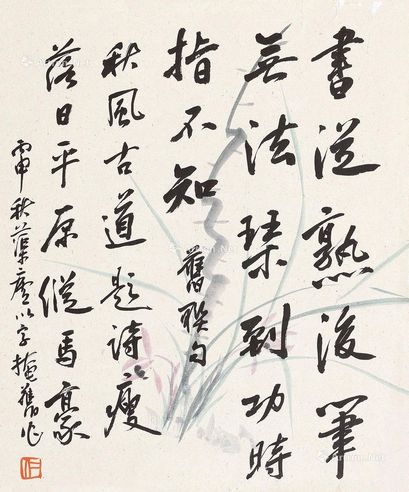 書從熟後筆
無法琹到功時
指不知
舊聯句
秋風古道題詩瘦
落日平原縱馬豪
丙申秋蕖盦以字掩舊作